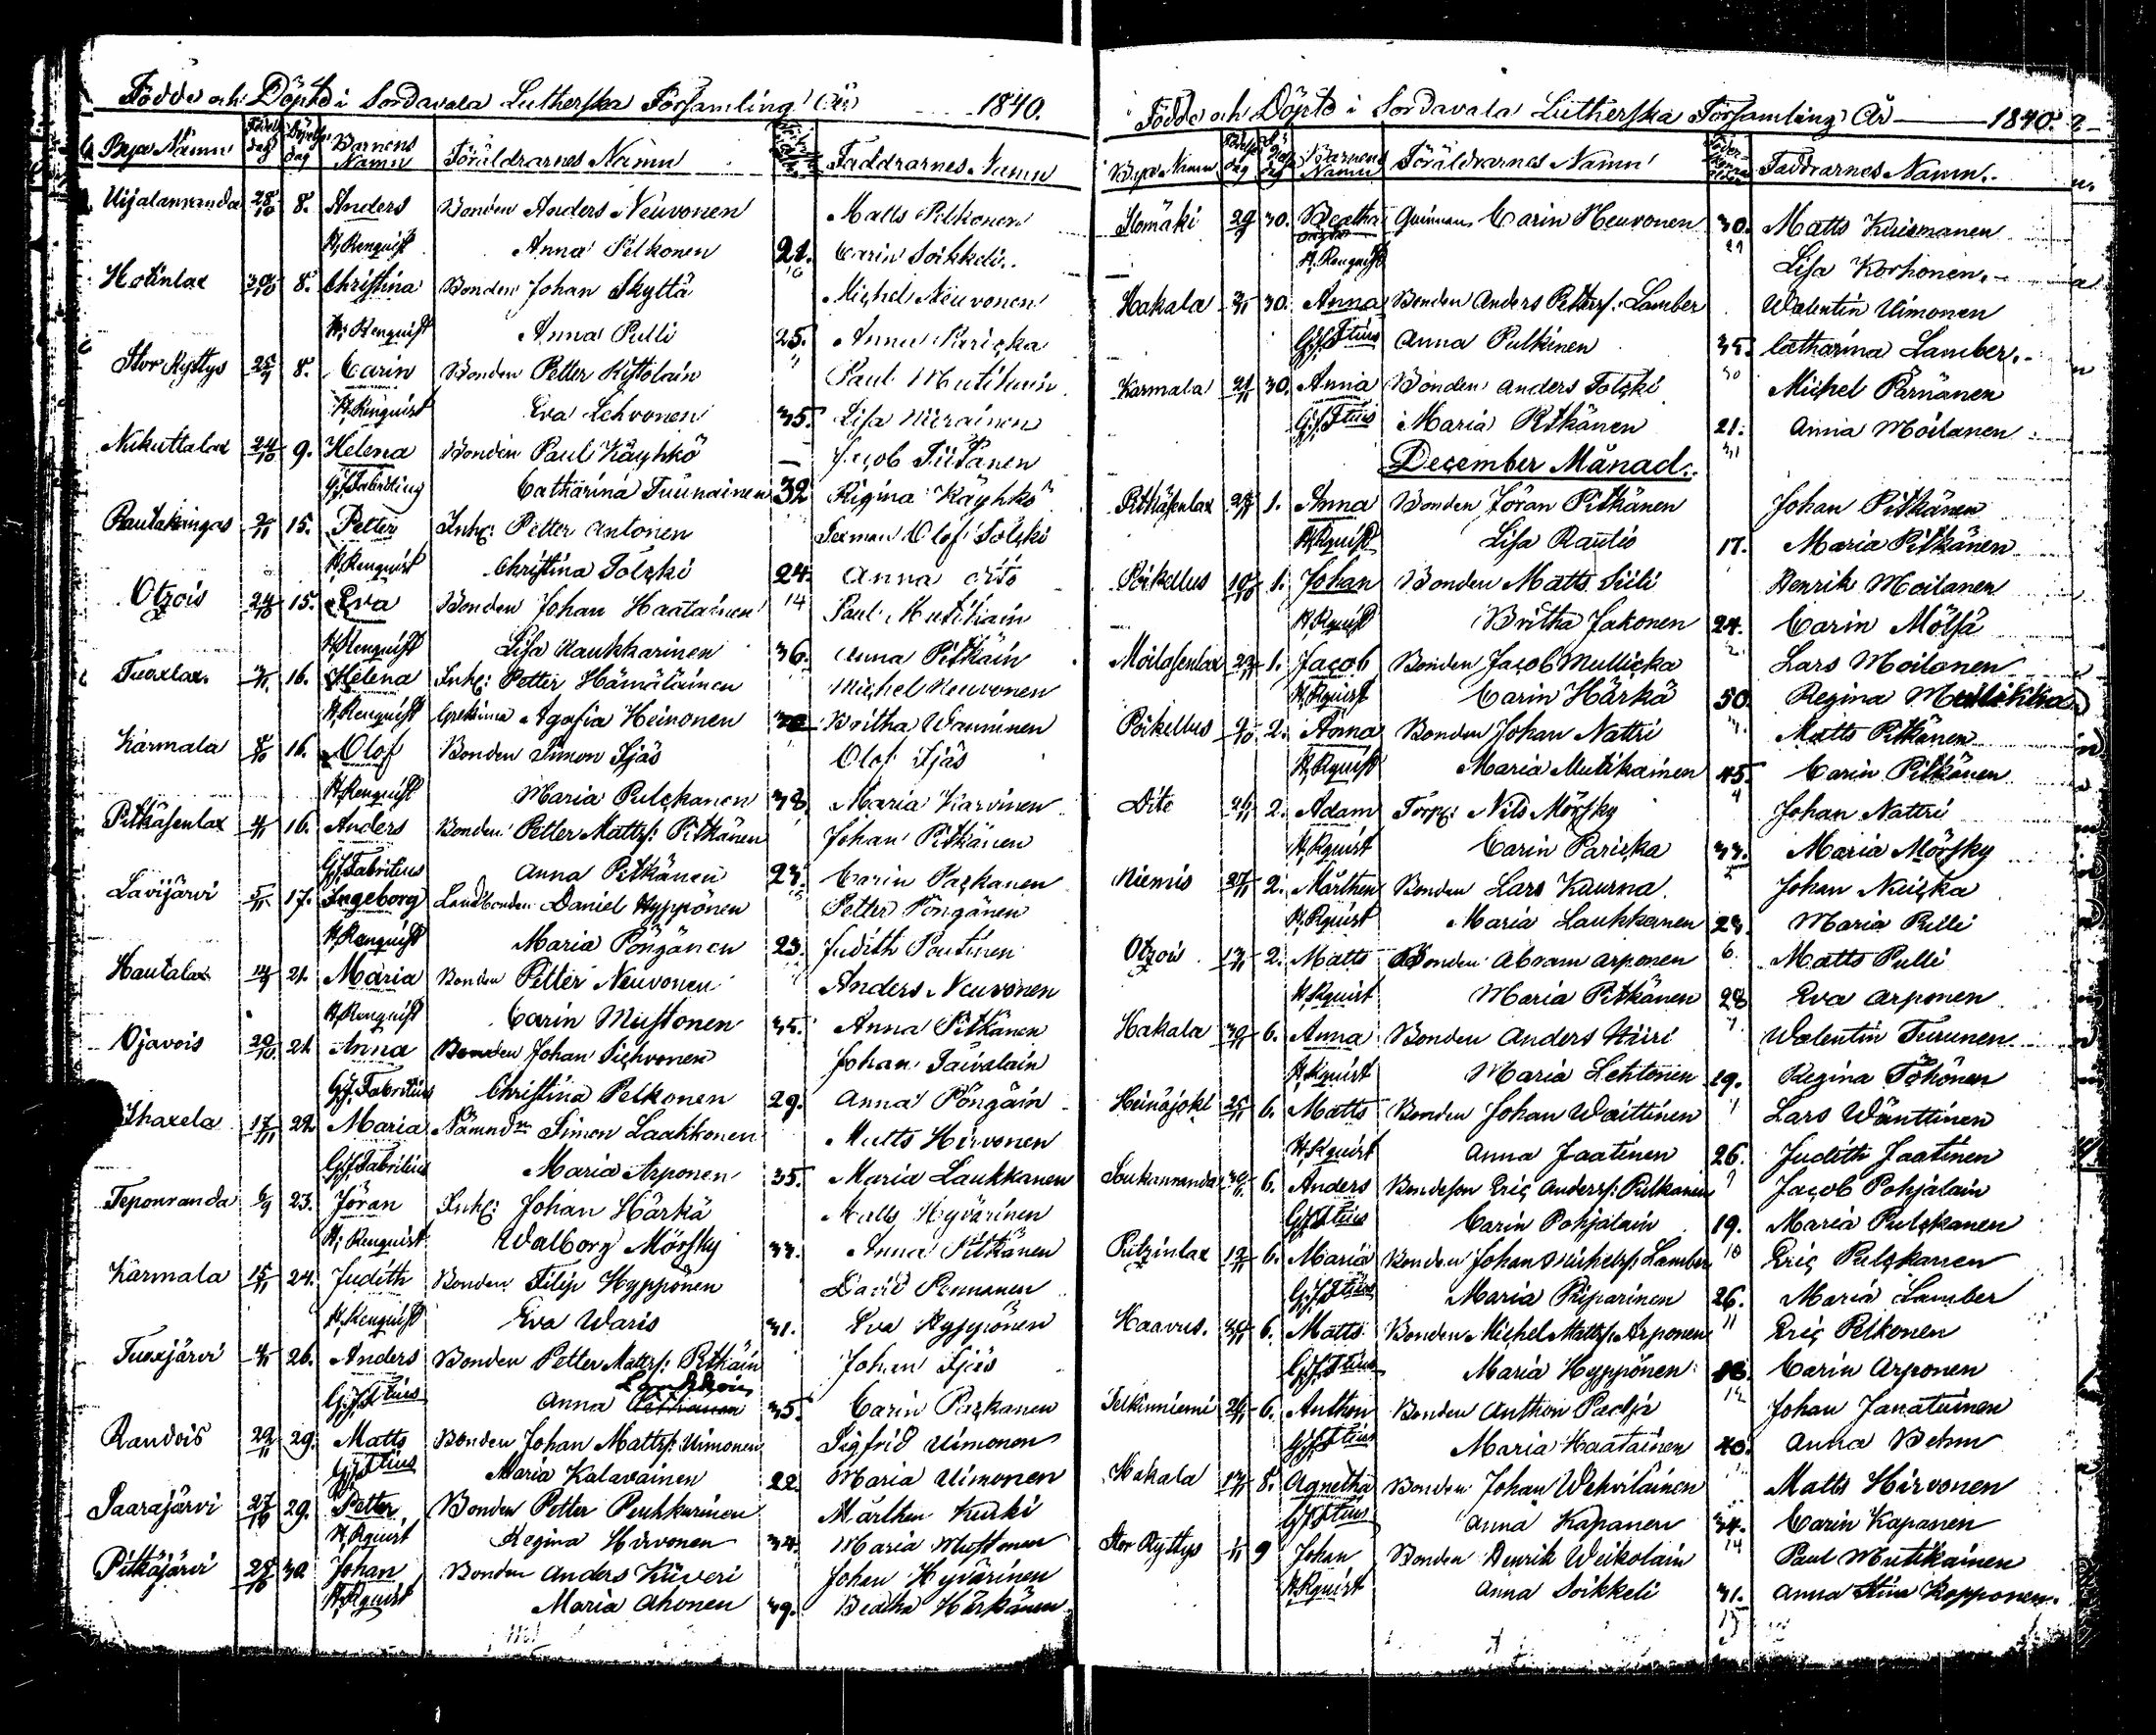 Födde och Döpte i Sordavala Lutherska Församling År 1840.
Bya Namn Födelse dag Döpelse dag Barnens Namn Föräldrarnes Namn Faddrarnes Namn
Uijalanranda 28/10 8. Anders Bonden Anders Neuvonen Matts Pelkonen
H. Renquist Anna Pelkonen 21. Carin Soikkeli
Hotinlax 30/10 8. Christina Bonden Johan Skyttä Michel Neuvonen
H. Renquist Anna Pulli 25. Anna Paricka
Stor Ryttys 25/9 8. Carin Bonden Petter Ryttölain Paul Mutikain
H. Renquist Eva Lehvonen 35. Lisa Hierainen
Nikuttalax 24/10 9. Helena Bonden Paul Käyhkö Jacob Tiitanen
G.J. Fabritius Catharina Tuunainen 32 Regina Käyhkö
Rautakangas 2/11 15. Petter Inh: Petter Antonen Olof Tolcki
H. Renquist Christina Tolcki 24. Anna
Otzois 24/10 15. Eva Bonden Johan Haatainen 14 Paul Mutikain
H. Renquist Lisa Kaukkarinen 36. Anna Pitkäin
Tuoxlax 16. Helena Inh: Petter Hämäläinen Michel Neuvonen
H. Renquist Agafia Heinonen Britha Wänninen
Kärmala 8/10 16. Olof Bonden Simon Ijäs Olof Ijäs
H. Renquist Maria Pulckanen 38. Maria Karvinen
Pitkäsenlax 4/11 16. Anders Bonden Petter Mattss: Pitkänen Johan Pitkänen
G.J. Fabritius Anna Pitkänen 23. Carin Packanen
Lavijärvi 5/11 17. Ingeborg Landbonden Daniel Hyppönen Petter Pöngänen
H. Renquist Maria Pöngänen 23. Judith Poutinen
Hautalax 14/9 21. Maria Bonden Petter Neuvonen Anders Neuvonen
H. Renquist Carin Mustonen 35. Anna Pitkänen
Ojavois 20/10 21. Anna Bonden Johan Sichvonen Johan Taivalain
G.J. Fabritius Christina Pelkonen 29. Anna Pöngäin
Ihaxela 17/11 22. Maria Nämndm Simon Laakkonen Matts Hirvonen
G.J. Fabritius Maria Arponen 35. Maria Laukkanen
Teponranda 6/9 23. Jöran Inh: Johan Härkä Matts Hyvärinen
H. Renquist Walborg Mörsky 33. Anna Pitkänen
Kärmala 15/11 24. Judith Bonden Filip Hyppönen David Pennanen
H. Renquist Eva Waris 31. Eva Hyppönen
Tuoxjärvi 26. Anders Bonden Petter Mattss: Pitkäin Johan Ijäs
G.J. F:tius Anna 35. Carin Packanen
Randois 22/11 29. Matts Bonden Johan Mattss: Uimonen Sigfrid Uimonen
G.J. F:tius Maria Kalavainen 22. Maria Uimonen
Saarajärvi 27/10 29. Petter Bonden Petter Puhkarinen Mårthen Kurki
H. Rquist Regina Hirvonen 34. Maria Mustonen
Pitkäjärvi 28/10 30. Johan Bonden Anders Kiiveri Johan Hyvärinen
H. Rquist Maria Ahonen 39. Beatha Härkänen
Födde och Döpte i Sordavala Lutherska Församling År 1840.
Bya Namn Barnens Namn Föräldrarnes Namn Faddrarnes Namn
Ilomäki 29/9 30. Beatha Qvinnan Carin Neuvonen 30. Matts Kuismanen
H. Renquist 29 Lisa Korhonen
Hakala 30. Anna Bonden Anders Petterss: Lamber Walentin Uimonen
G.J. F:tius Anna Pulkinen 35. Catharina Lamber
Karmala 21/11 30. Anna Bonden Anders Tolcki 30 Michel Pärnänen
G.J. F:tius Maria Pitkänen 21. Anna Moilanen
December Månad. 31
Pitkäsenlax 1. Anna Bonden Jöran Pitkänen Johan Pitkänen
H. Rquist Lisa Rautio 17. Maria Pitkänen
Poikellus 10/10 1. Johan Bonden Matts Siili Henrik Moilanen
H. Rquist Britha Jakonen 24. Carin Möltsä
Moilasenlax 22/11 1. Jacob Bonden Jacob Mullicka Lars Moilanen
H. Rquist Carin Härkä 50. Regina
Poikellus 2. Anna Bonden Johan Nattri Matts Pitkänen
H. Rquist Maria Mutikainen 45. Carin Pitkänen
Oite 2. Adam Torp: Nils Mörsky 4 Johan Nattri
H. Rquist Carin Paricka 33. Maria Mörsky
Niemis 2. Mårthen Bonden Lars Kaurna Johan Nuicka
H. Rquist Maria Laukkanen 23. Maria Pulli
Otzois 13/11 2. Matts Bonden Abram Arponen 6. Matts Pulli
H. Rquist Maria Pitkänen 28 Eva Arponen
Hakala 6. Anna Bonden Anders Kiiri Walentin Turunen
H. Rquist Maria Lehtonen 29. Regina Töhönen
Heinäjoki 25/11 6. Matts Bonden Johan Waittinen Lars Wänttinen
H. Rquist Anna Jaatinen 26. Judith Jaatinen
Soukanranda 6. Anders Bondeson Eric Anderss: Pulkanen 9 Jacob Pohjalain
G.J. F:tius Carin Pohjalain 19. Maria Pulckanen
Putzinlax 12/11 6. Maria Bonden Johan Michelss: Lamber 10 Eric Pulckanen
G.J. F:tius Maria Riparinen 26. Maria Lamber
Haavus. 6. Matts Bonden Michel Mattss: Arponen 11 Eric Pelkonen
G.J. F:tius Maria Hyppönen Carin Arponen
Telkinniemi 26/11 6. Anthon Bonden Anthon Padja 12 Johan Janatuinen
G.J. F:tius Maria Haatainen 40. Anna Behm
Hakala 17/11 8. Agnetha Bonden Johan Wehviläinen Matts Hirvonen
G.J. F:tius Anna Kapanen 34. Carin Kapanen
Stor Ryttys 9 Johan Bonden Henrik Weikolain 14 Paul Mutikainen
H. Rquist Anna Soikkeli 31. Anna Stina Kopponen.